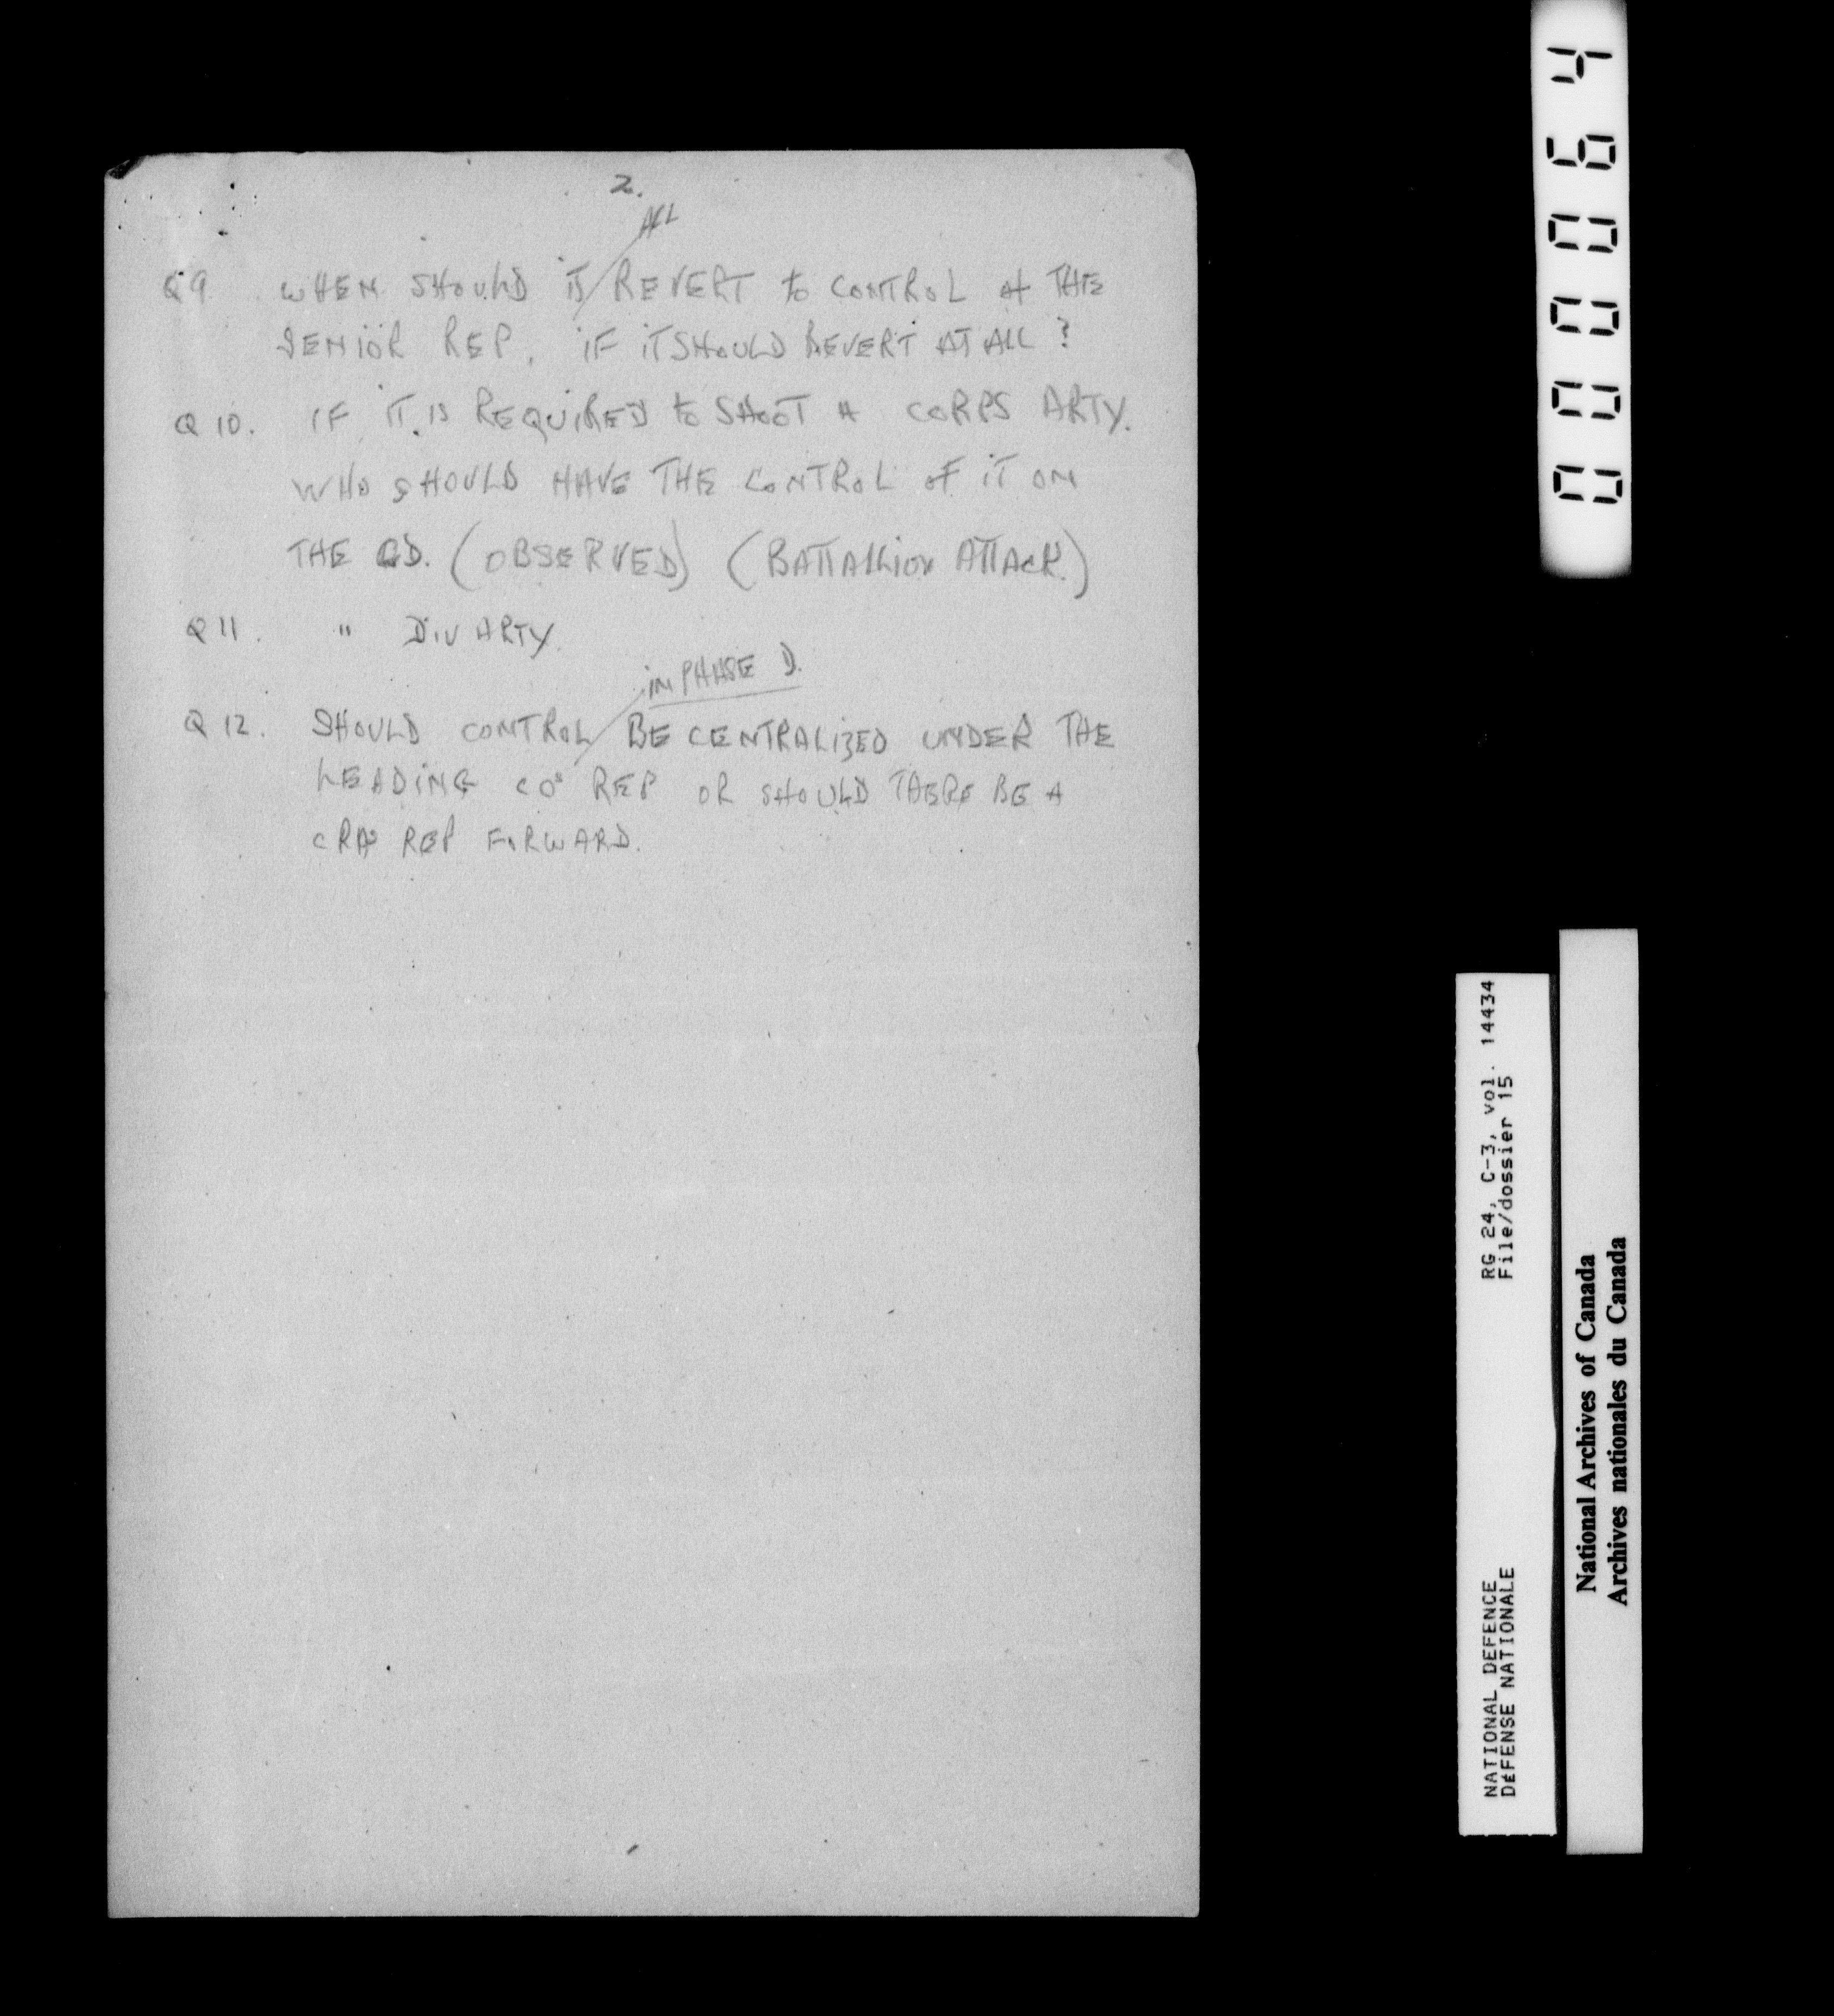 2.
ALL
Q9 WHEN SHOULD IT / REVERT to CONTROL of THE
SENIOR REP. IF IT SHOULD REVERT AT ALL ?
Q 10. IF IT IS REQUIRED to SHOOT A CORPS ARTY.
WHO SHOULD HAVE THE CONTROL OF IT ON
THE GD. (OBSERVED) (BATTALLION ATTACK.)
Q 11. " DIV ARTY.
IN PHASE D.
Q 12. SHOULD CONTROL / BE CENTRALIZED UNDER THE
LEADING COs REP OR SHOULD THERE BE A
CRA's REP FORWARD.
000064
RG 24, C-3, vol. 14434
File/dossier 15
NATIONAL DEFENCE
DÉFENSE NATIONALE
National Archives of Canada
Archives nationales du Canada